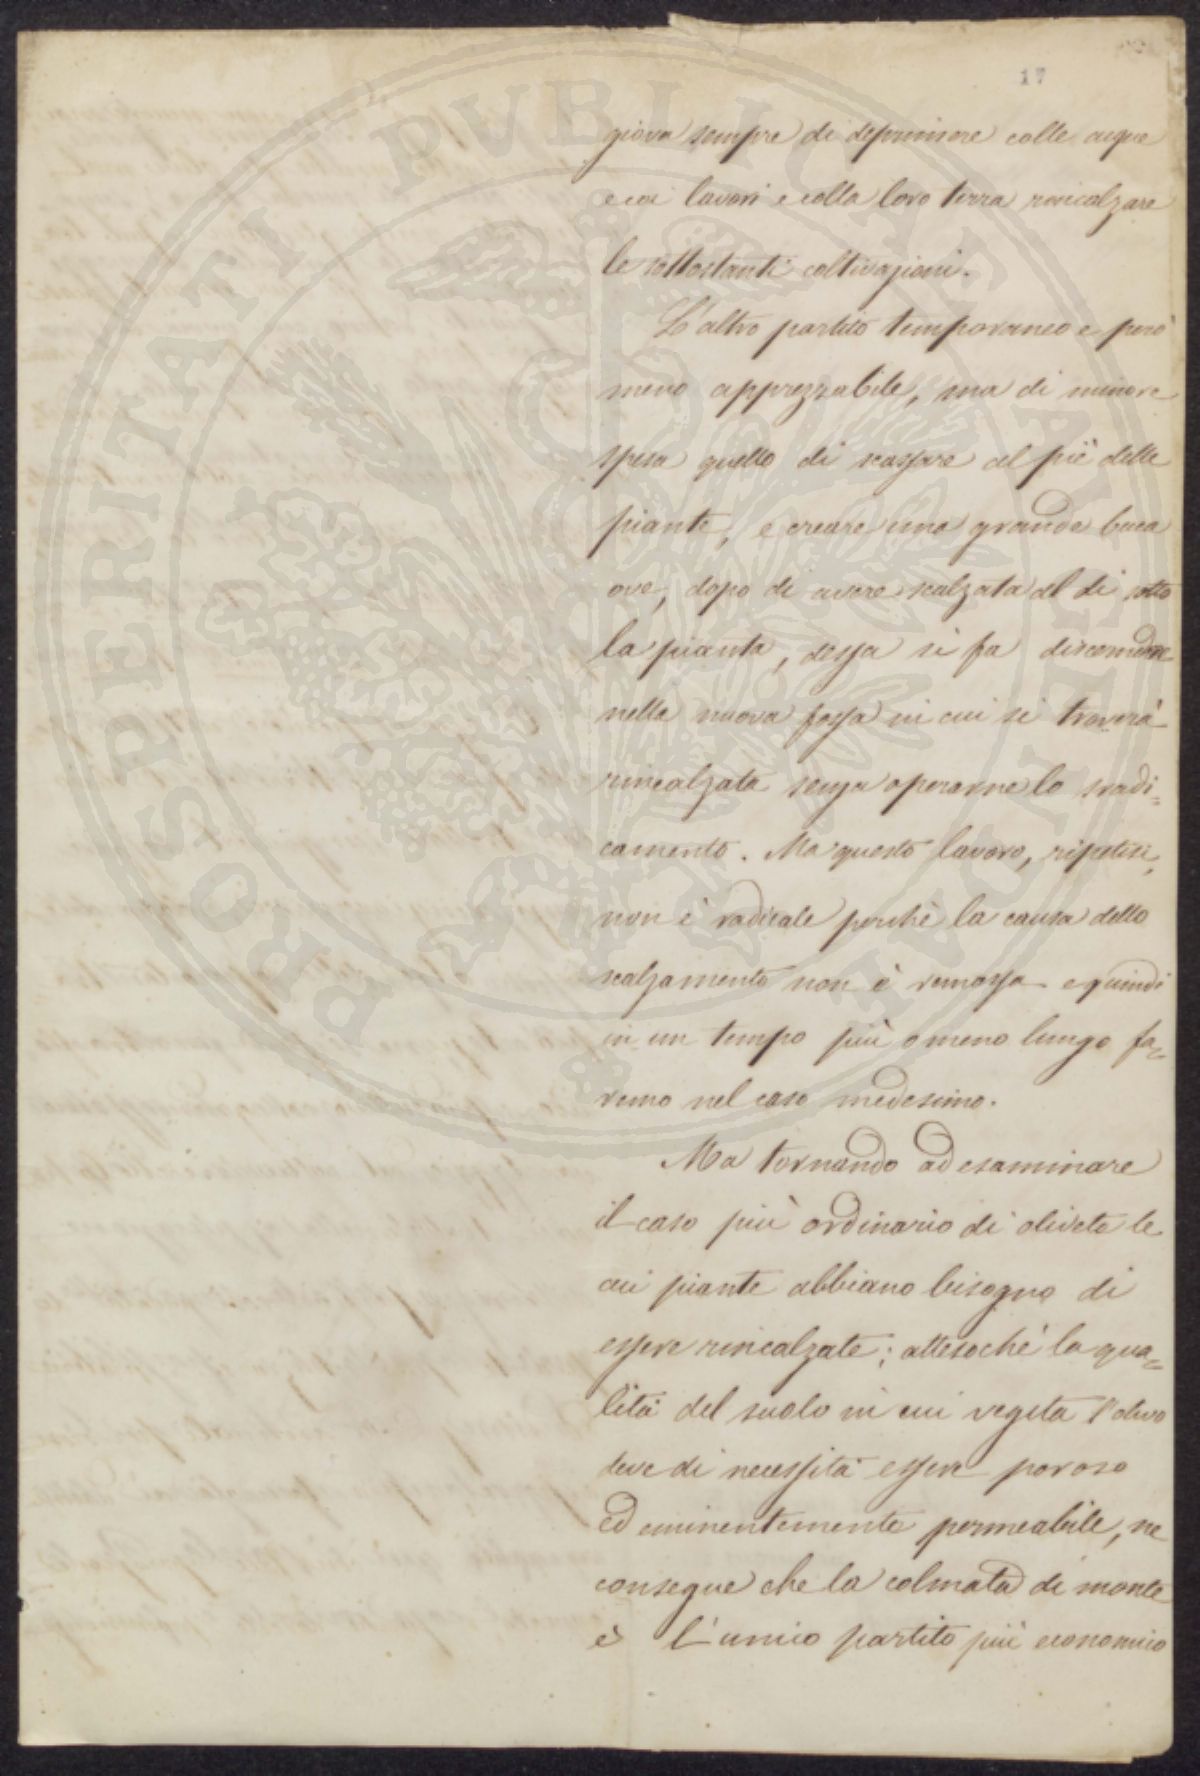 17
giova sempre di deprimere colle acque
e coi lavori e colla loro terra rincalzare
le sottostanti coltivazioni.
L'altro partito temporaneo e però
meno apprezzabile, ma di minore
spesa quello di scassare al piè delle
piante, e creare una grande buca
ove, dopo di avere scalzata al di sotto
la pianta, dessa si fa discendere
nella nuova fossa in cui si troverà
rincalzata senza operarne lo sradi=
camento. Ma questo lavoro, ripetesi,
non è radicale perchè la causa dello
scalzamento non è remossa e quindi
in un tempo più o meno lungo sa=
remo nel caso medesimo.
Ma tornando ad esaminare
il caso più ordinario di oliveto le
cui piante abbiano bisogno di
essere rincalzate; attesochè la qua=
lità del suolo in cui vegeta l'olivo
deve di necessità essere poroso
ed eminentemente permeabile, ne
consegue che la colmata di monte
è l'unico partito più economico
PROSPERITATI PUBLICAE AUGENDAE